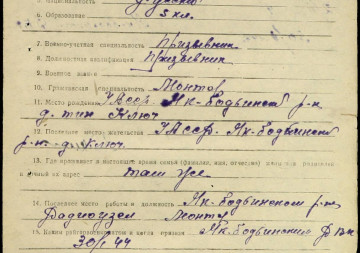 5. Национальность
6. Образование 5 кл.
7. Военно-учетная специальность Призывник
8. Должностная квалификация Призывник
9. Военное звание
10. Гражданская специальность Монтер
11. Место рождения УАССР Як-Бодьинский р-н
д. Ключ
12. Последнее место жительства УАССР. Як-Бодьинский
р-н-д-Ключ
13. Где проживает в настоящее время семья (фамилия, имя, отчество)
и точный ее адрес там же
14. Последнее место работы и должность Як-Бодьинский р-н
Радиоузел монтер
15. Каким райвоенкоматом и когда призван Як-Бодьинский
30/I 44